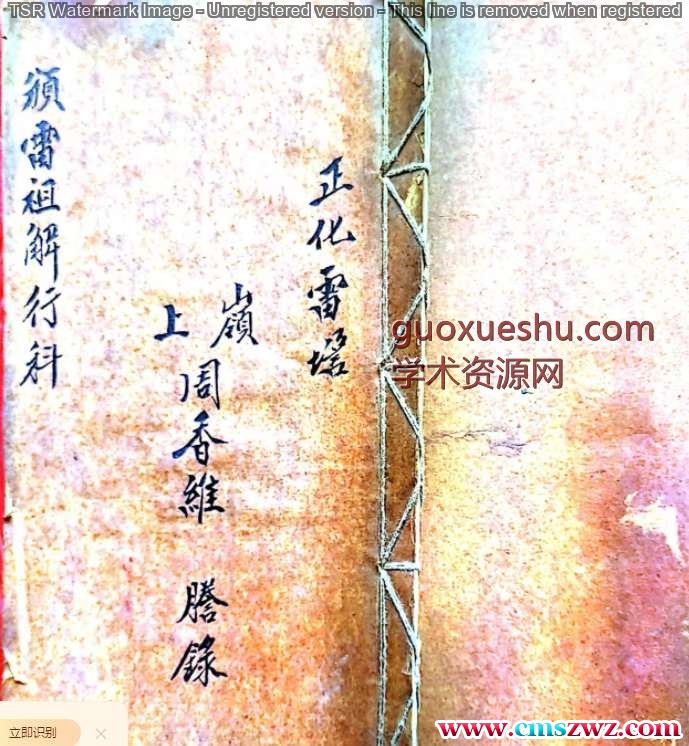 TSR Watermark Image - Unregistered version - This line is removed when registered
正化雷壇
嶺上
周香維 謄錄
頒雷祖解行科
guoxueshu.com
学术资源网
立即识别
www.cmszwz.com